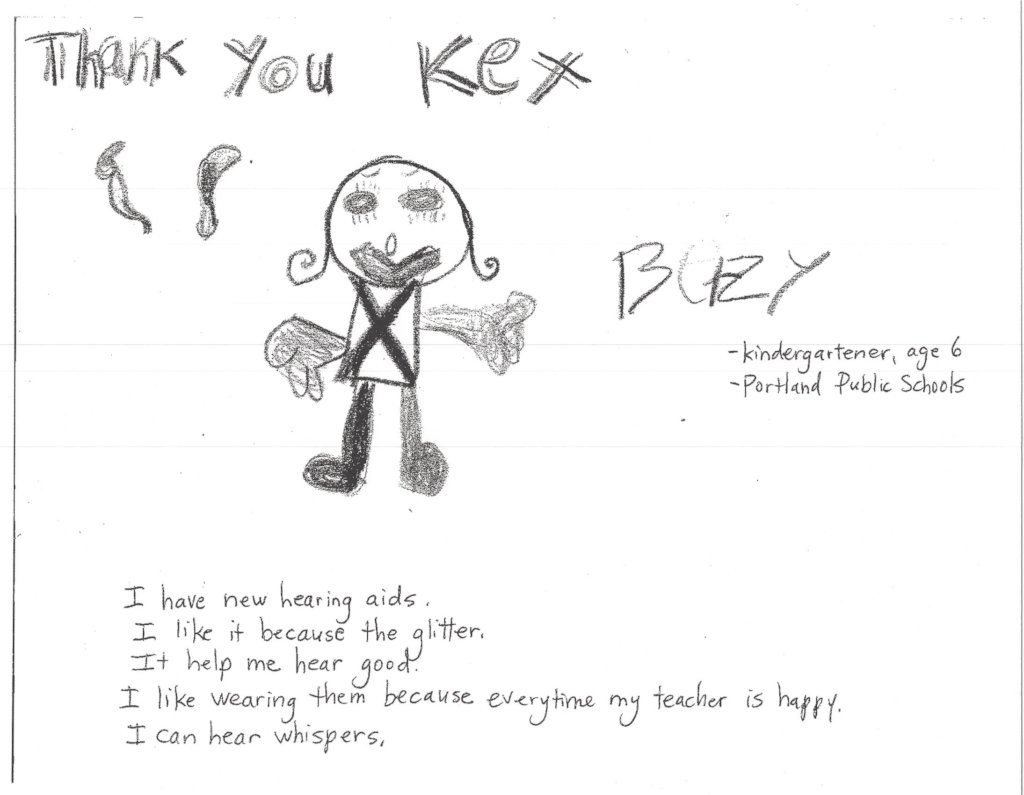 Thank You Kex
BEZY
-kindergartener, age 6
-Portland Public Schools
I have new hearing aids.
I like it because the glitter.
It help me hear good.
I like wearing them because everytime my teacher is happy.
I can hear whispers.